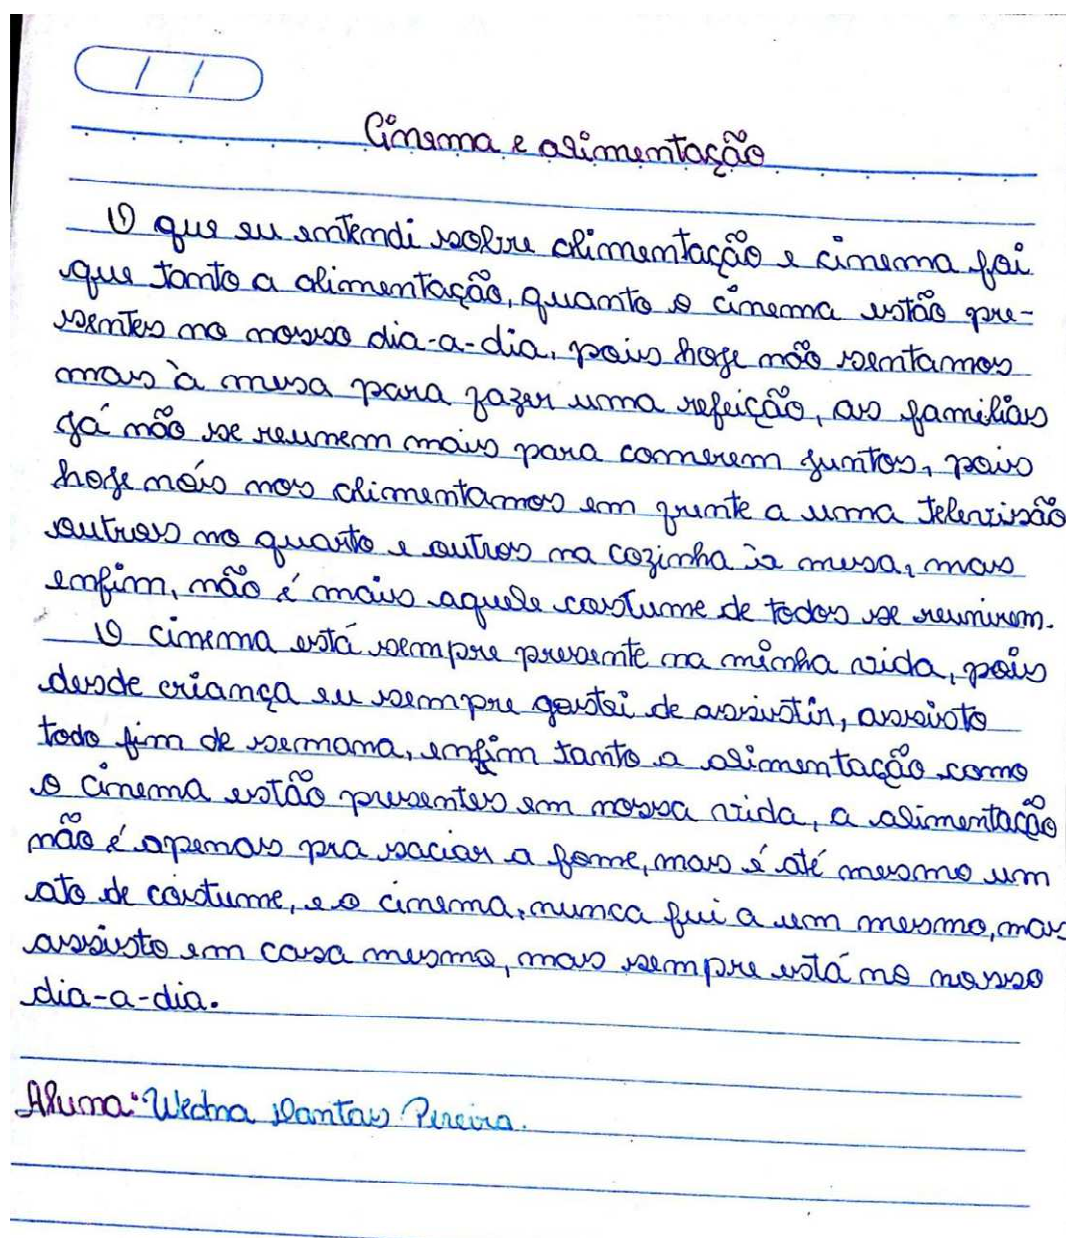 / /
Cinema e alimentação
O que eu entendi sobre alimentação e cinema foi
que tanto a alimentação, quanto o cinema estão pre-
sentes no nosso dia-a-dia, pois hoje não sentamos
mais à mesa para fazer uma refeição, as famílias
já não se reunem mais para comerem juntos, pois
hoje nóis nos alimentamos em frente a uma televisão
outros no quarto e outros na cozinha à mesa, mas
enfim, não é mais aquele costume de todos se reunirem.
O cinema está sempre presente na minha vida, pois
desde criança eu sempre gostei de assistir, assisto
todo fim de semana, enfim tanto a alimentação como
o cinema estão presentes em nossa vida, a alimentação
não é apenas pra saciar a fome, mas é até mesmo um
ato de costume, e o cinema, nunca fui a um mesmo, mas
assisto em casa mesmo, mas sempre está no nosso
dia-a-dia.
Aluna: Wedna Dantas Pereira.